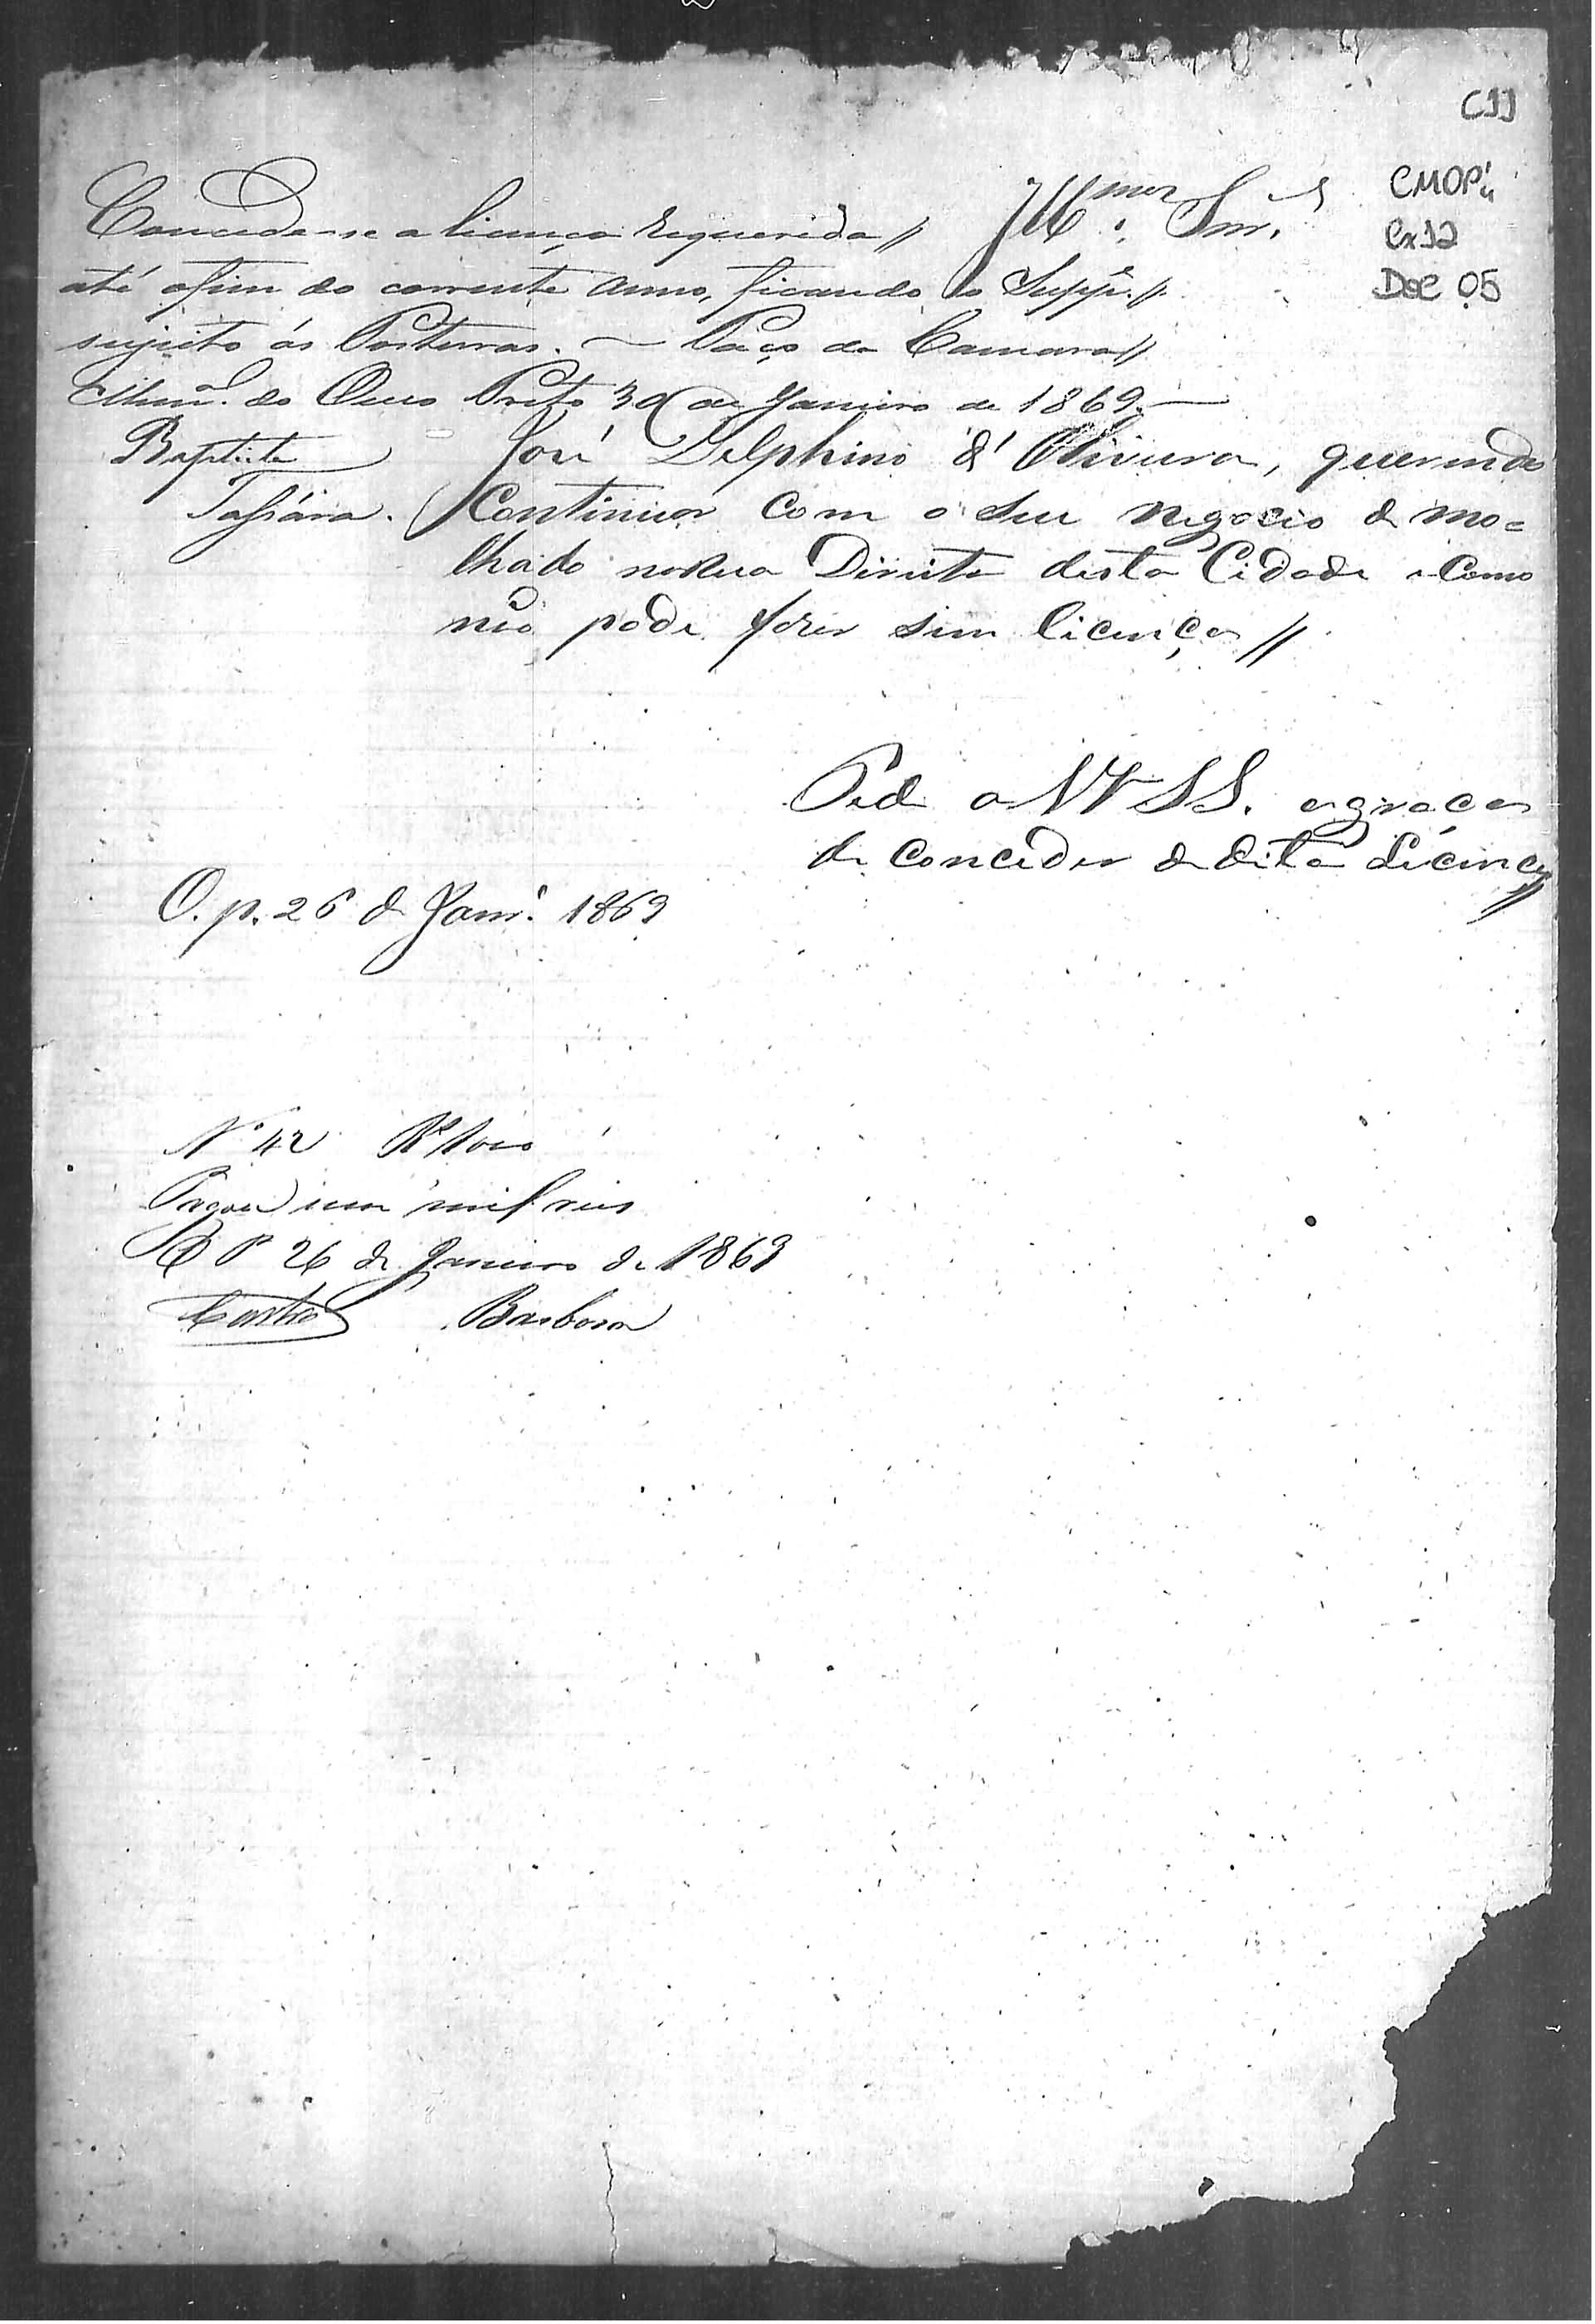 C11
CMOP
Cx 12
Doc 05
Ill.mos Snr.s
Conceda-se a licença requerida //
até o fim do corrente anno, ficando o Supp.e //
sujeito ás Posturas. — Paço da Camara //
Mun.al do Ouro Preto 30 de Janeiro de 1869. —
Baptista
Tassára.
José Delphino d' Oliveira, querendo
Continuar com o seu negocio de mo=
lhado na Rua Direita desta Cidade e Como
não pode fazer sem licença //
Ped a VV SS. a graça
de conceder a dita Licença //
O. p. 26 de Janr.o 1869
N.o 42 R.s 1000
Pagou um mil reis
O P 26 de Janeiro de 1869
Castro Barbosa